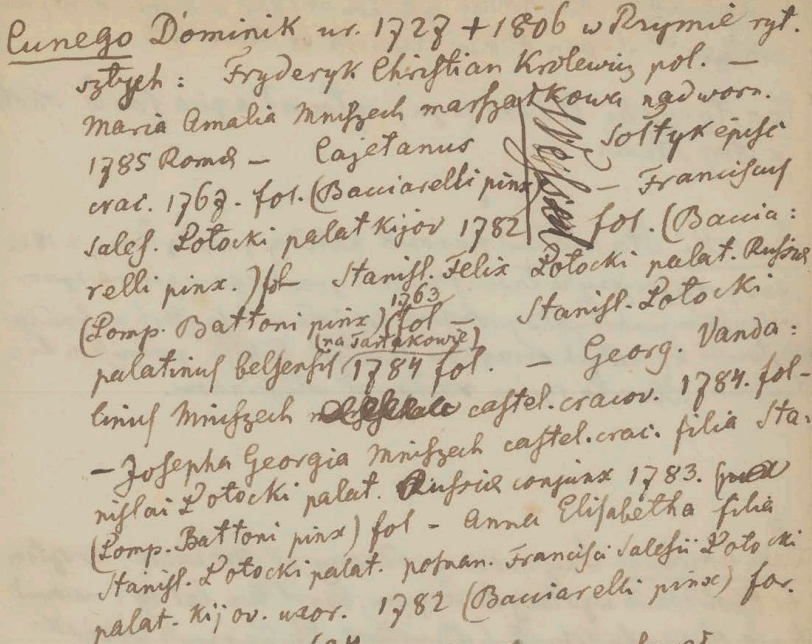 Cunego Dominik ur. 1727 + 1806 w Rzymie ryt.
sztych: Fryderyk Christian Królewicz pol. —
Maria Amalia Mniszech marszałkowa nadworn.
1785 Romæ — Cajetanus Sołtyk episc
crac. 1767. fol. (Bacciarelli pinx) — Franciscus
Sales. Potocki palat Kijov 1782 fol. (Baccia:
relli pinx.) fol — Stanisl. Felix Potocki palat. Russiæ
(Pomp. Battoni pinx) 1763 fol — Stanisl. Potocki
palatinus belsensis (na Tartakowie) 1784 fol. — Georg. Vanda:
linus Mniszech castel. cracov. 1784. fol-
— Josepha Georgia Mniszech castel. crac. filia Sta:
nislai Potocki palat. Russiæ conjunx 1783.
(Pomp. Battoni pinx) fol - Anna Elisabetha filia
Stanisl. Potocki palat. posnan. Francisci Salesii Potocki
palat. Kijov. uxor. 1782 (Bacciarelli pinx) for.